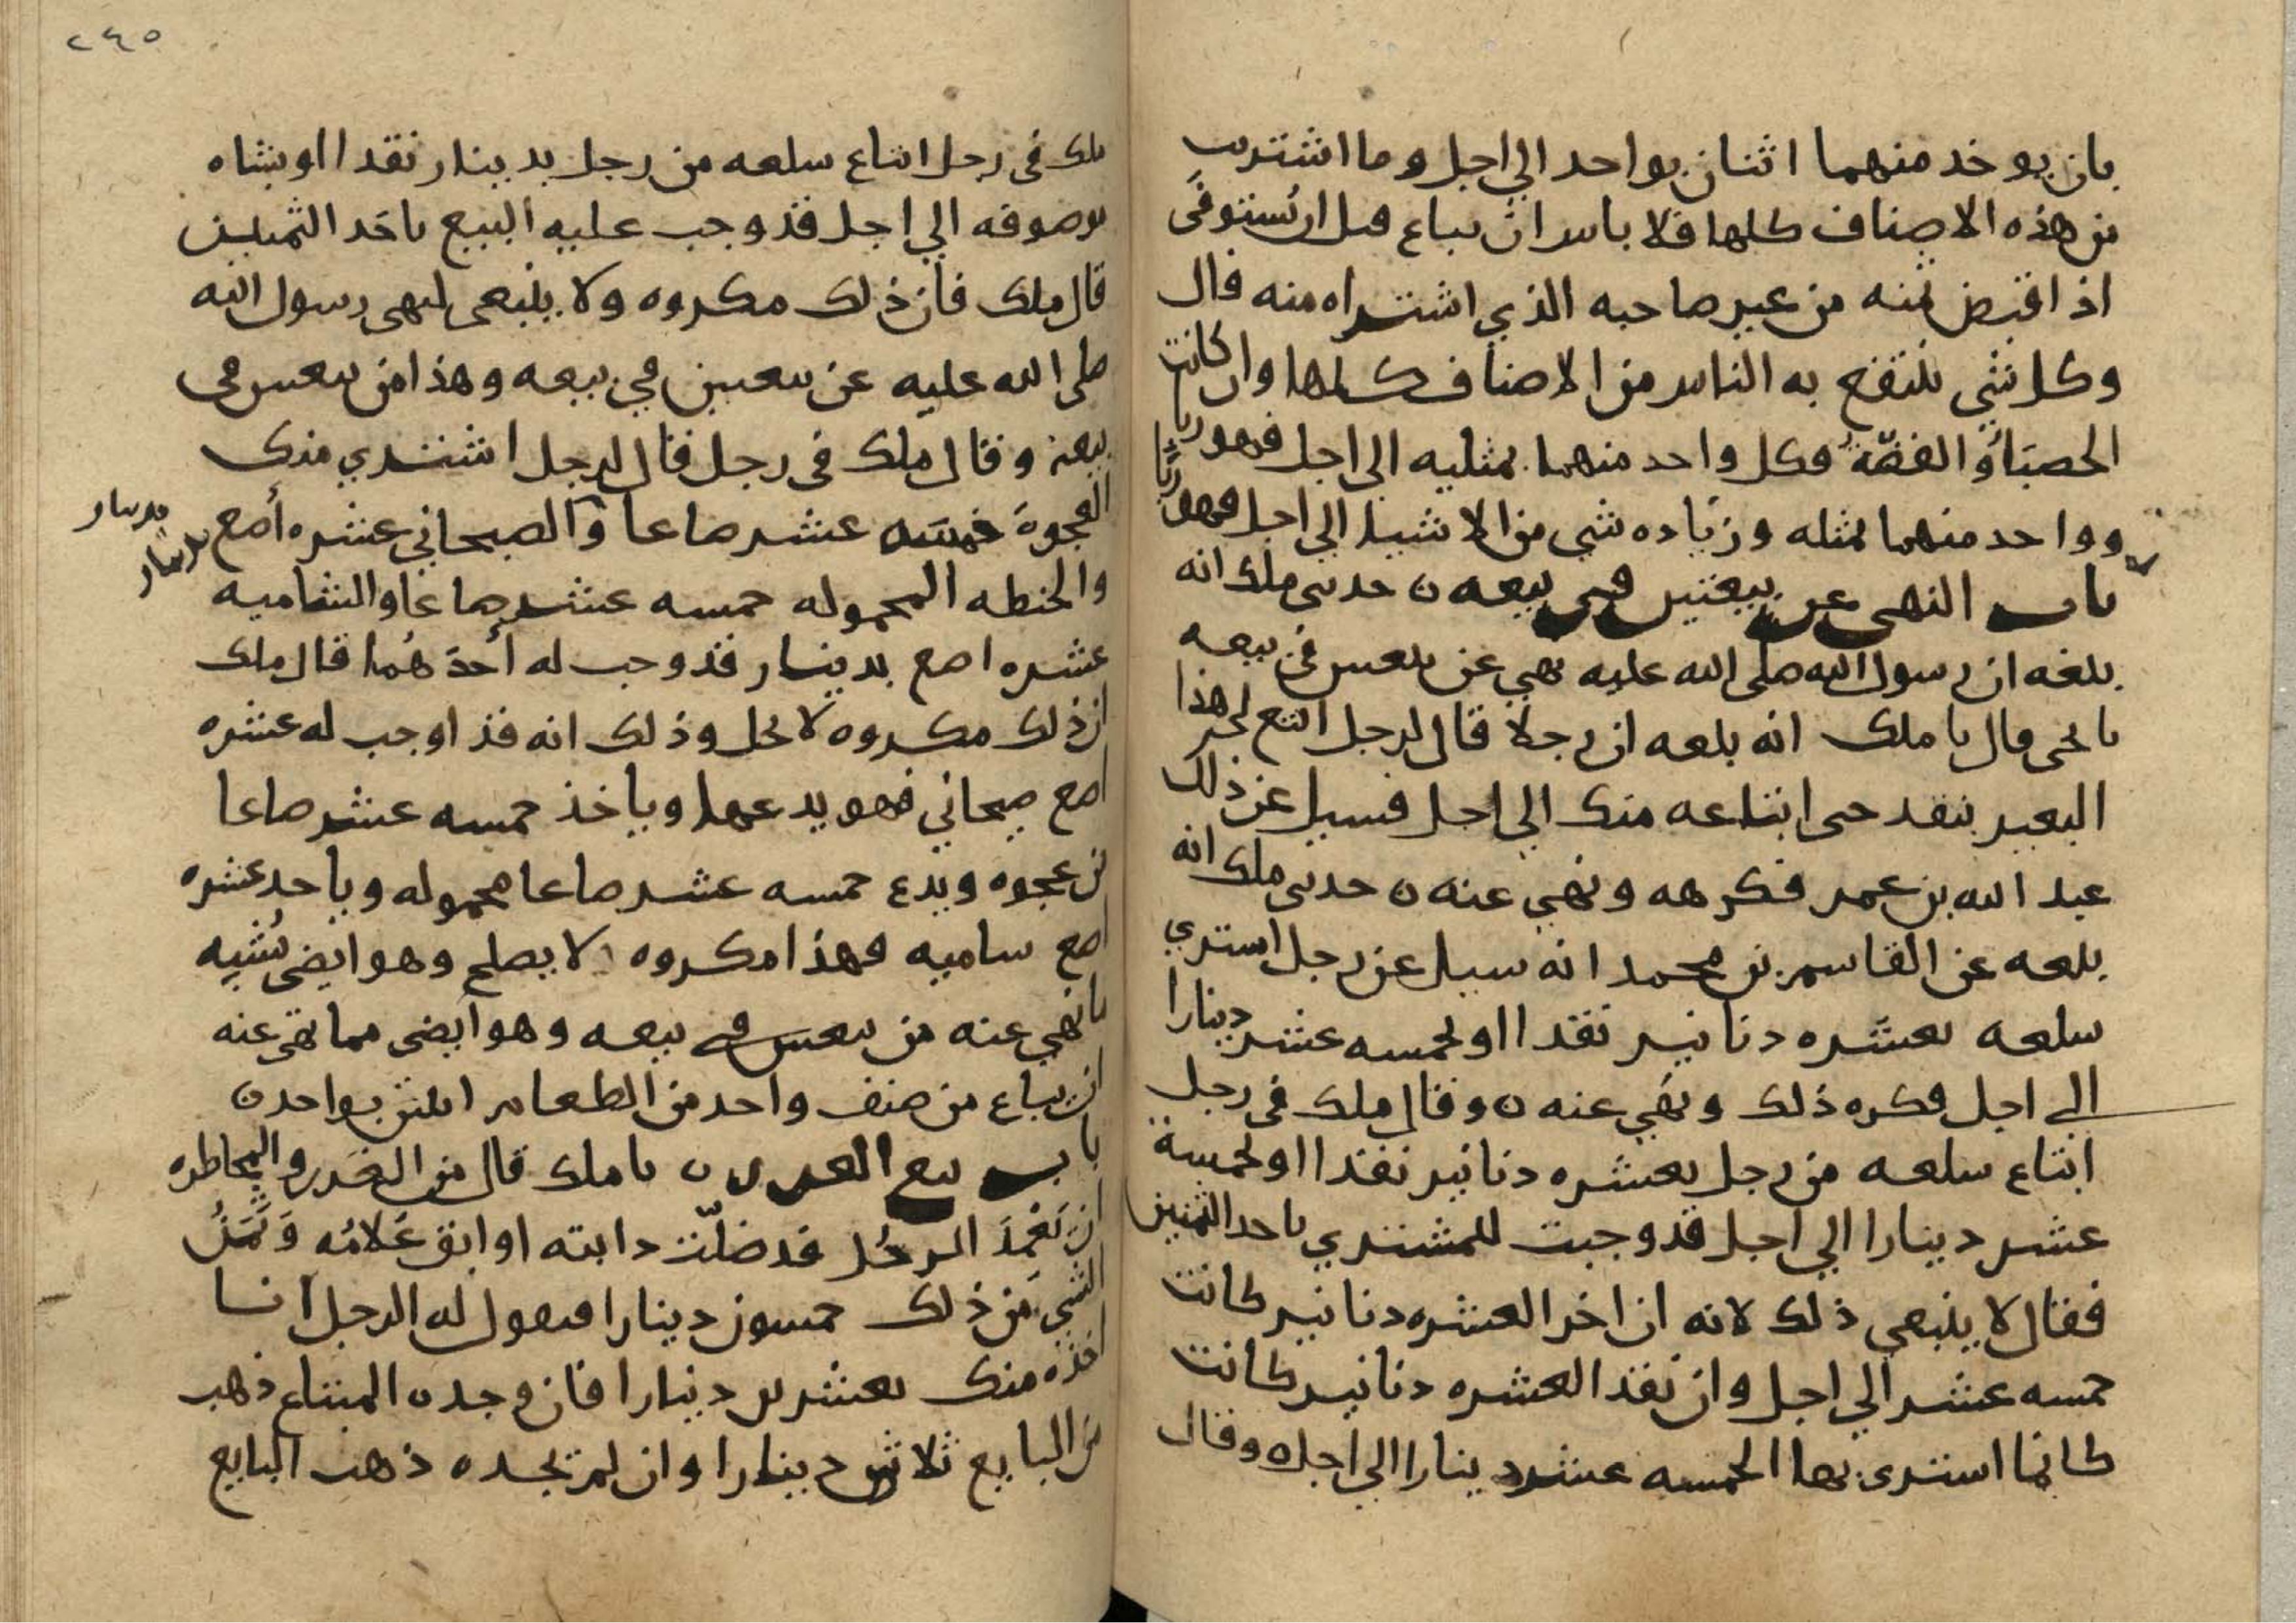 بان يوخد منهما اثنان بواحد الي اجل وما اشتريت
من هذه الاصناف كلها فلا باس ان يباع قبل ان يُستوفَى
اذا قبض ثمنه من غير صاحبه الذي اشتراه منه قال
وكل شي ينتفع به الناس من الاصناف كلها وان كانت
الحصبَأ والقصّة فكل واحد منهما بمثليه الى اجل فهو ربا
وواحد منهما بمثله وزياده شي من الاشيا الي اجل فهو ربا
باب النهى عن بيعتين في بيعه ن حدثنى ملك انه
بلغه ان رسول الله صلى الله عليه نهي عن بيعتين في بيعه
نا يحيى قال نا ملك انه بلغه ان رجلا قال لرجل ابتع لي هذا
البعير بنقد حتى ابتاعه منك الي اجل فسيل عن ذلك
عبد الله بن عمر فكرهه ونهي عنه ن حدثنى ملك انه
بلغه عن القاسم بن محمد انه سيل عن رجل اشترى
سلعه بعشره دنانير نقدا او بخمسه عشر دينارا
الي اجل فكره ذلك ونهي عنه ن وقال ملك في رجل
ابتاع سلعه من رجل بعشره دنانير نقدا او بخمسة
عشر دينارا الي اجل قد وجبت للمشتري باحد الثمنين
فقال لا ينبغي ذلك لانه ان اخر العشره دنانير كانت
خمسه عشر الي اجل وان نقد العشره دنانير كانت
كانما اشترى بها الخمسه عشر دينارا الي اجل ن وقال
٢٤٥
ملك في رجل ابتاع سلعه من رجل بدينار نقدا او بشاه
موصوفه الي اجل قد وجب عليه البيع باحَد الثمنين
قال ملك فان ذلك مكروه ولا ينبغى لنهى رسول الله
صلى الله عليه عن بيعتين في بيعه وهذا من بيعتين في
بيعة وقال ملك في رجل قال لرجل اشتري منك
العجوة خمسه عشر صاعا وَالصيحاني عشره أصع بدينار
والحنطه المحموله خمسه عشر صاعا والشاميه
عشره اصع بدينار قد وجب له أحدَهُما قال ملك
ان ذلك مكروه لا يحل وذلك انه قد اوجب له عشره
اصع صيحاني فهو يدعها وياخذ خمسه عشر صاعا
من عجوه ويدع خمسه عشر صاعا محموله وياخد عشره
اصع شاميه فهذا مكروه لا يصلح وهو ايضى يُشبِه
ما نهي عنه من بيعتين في بيعه وهو أيضى مما نهى عنه
ان يباع من صنف واحد من الطعام اثنين بواحد ن
باب بيع الغرر ن نا ملك قال من الغَرر والمخاطره
ان يَعْمِدَ الرجُل قد ضلّت دابته او ابق غلامُه وَثَمَنُ
الشي مَن ذلك خمسون دينارا فيقول له الرجل انا
اخذه منك بعشرين دينارا فان وجده المبتاع ذهب
من البايع ثلاثون دينارا وان لم يجده ذهب البايع